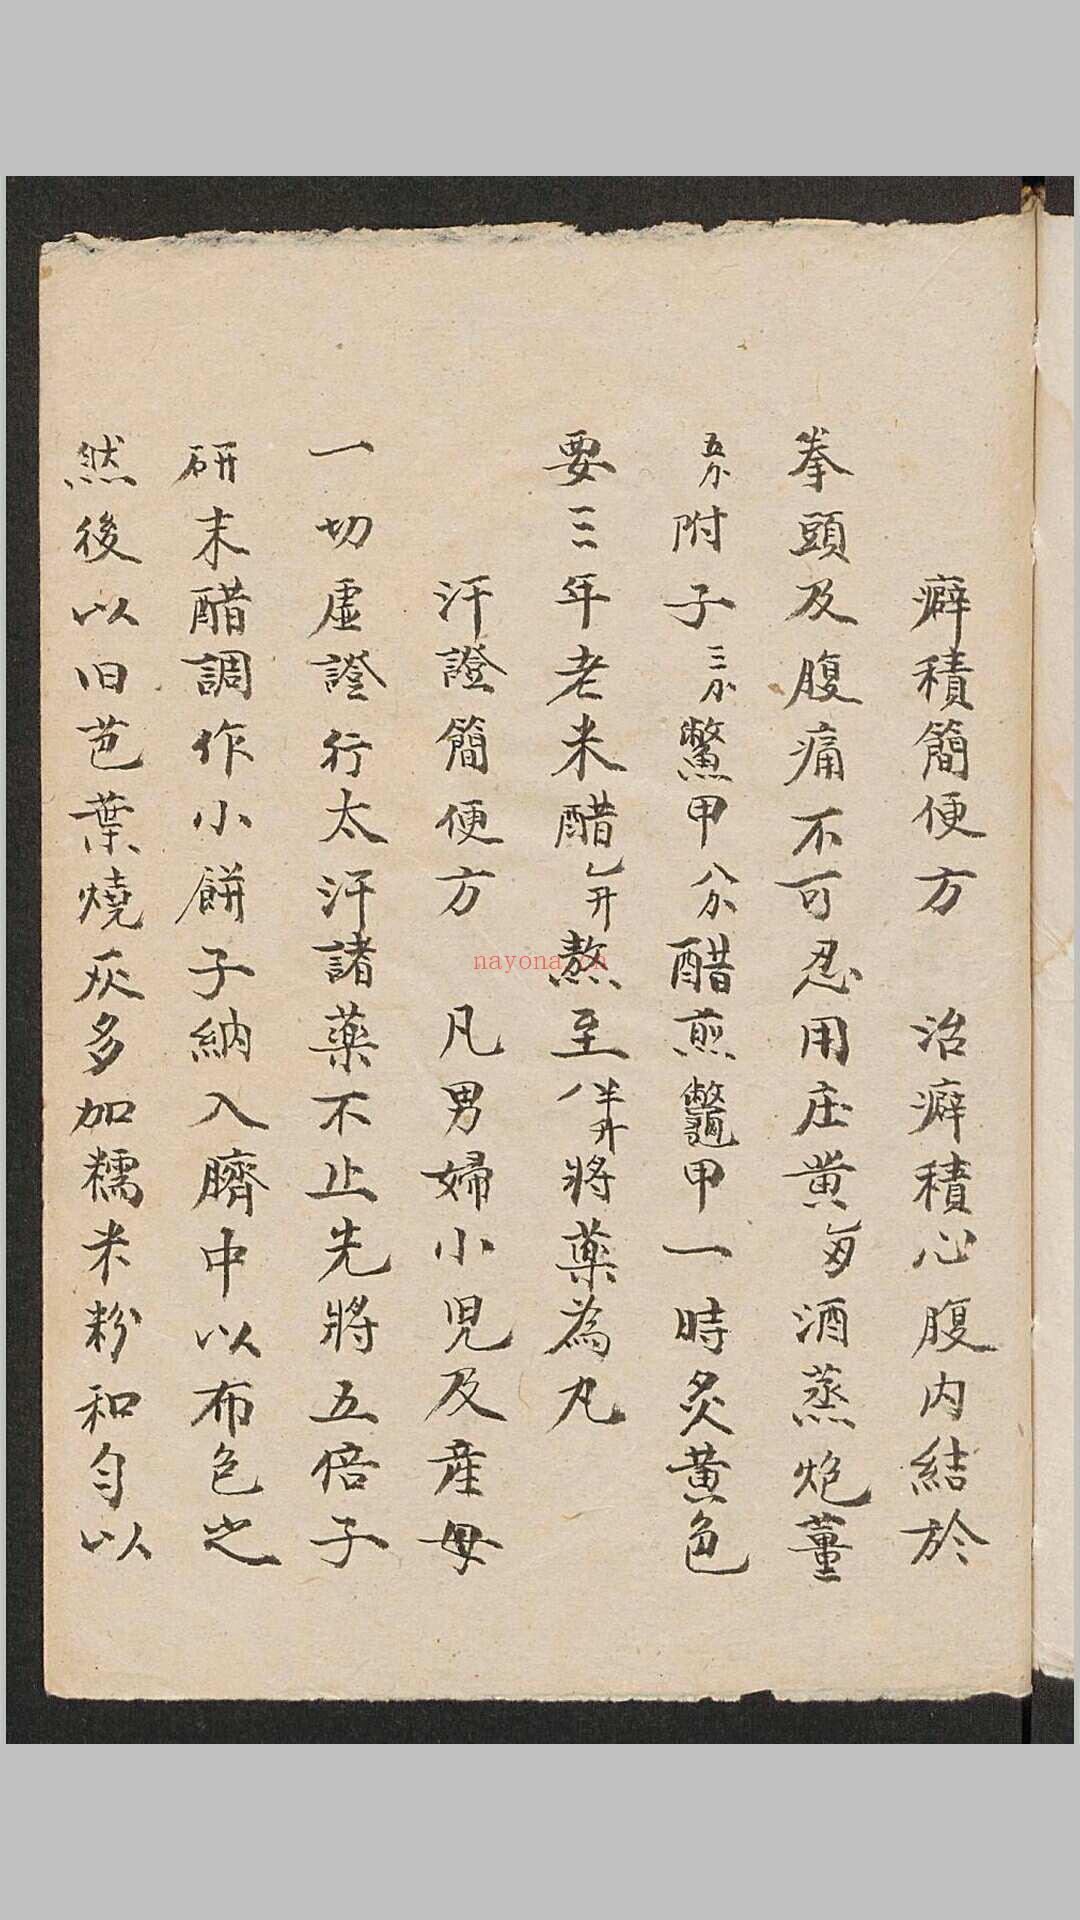 癖積簡便方　治癖積心腹内結於
拳頭及腹痛不可忍用庄黄酒蒸炮薑
五分附子三分鱉甲八分醋煎鱉甲一時炙黄色
要三年老米醋乙升熬至八半升將藥為丸
汗證簡便方　凡男婦小児及産母
一切虛證行太汗諸藥不止先將五倍子
研末醋調作小餅子納入臍中以布色之
然後以旧芭葉燒灰多加糯米粉和勻以
nayona.cn